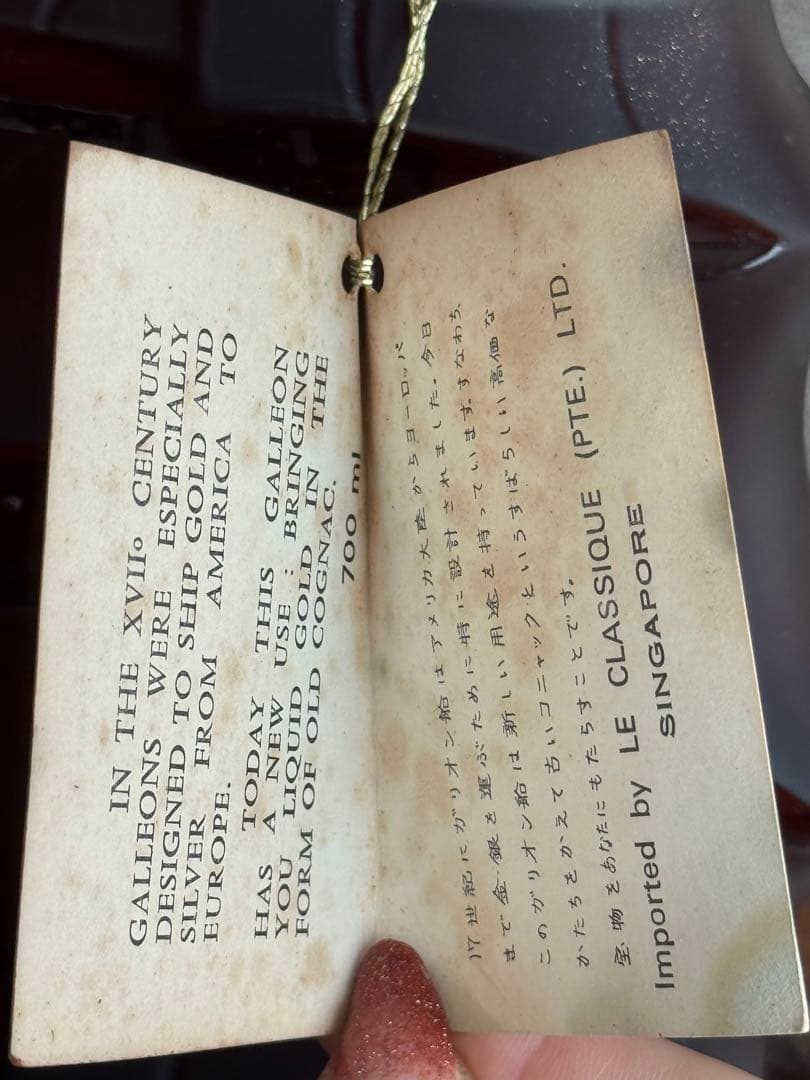 IN THE XVII° CENTURY
GALLEONS WERE ESPECIALLY
DESIGNED TO SHIP GOLD AND
SILVER FROM AMERICA TO
EUROPE.
TODAY THIS GALLEON
HAS A NEW USE : BRINGING
YOU LIQUID GOLD IN THE
FORM OF OLD COGNAC.
700 ml
17世紀にガリオン船はアメリカ大陸からヨーロッパ
まで金・銀を運ぶために特に設計されました。今日
このガリオン船は新しい用途を持っています。すなわち、
かたちをかえて古いコニャックというすばらしい高価な
宝物をあなたにもたらすことです。
Imported by LE CLASSIQUE (PTE.) LTD.
SINGAPORE